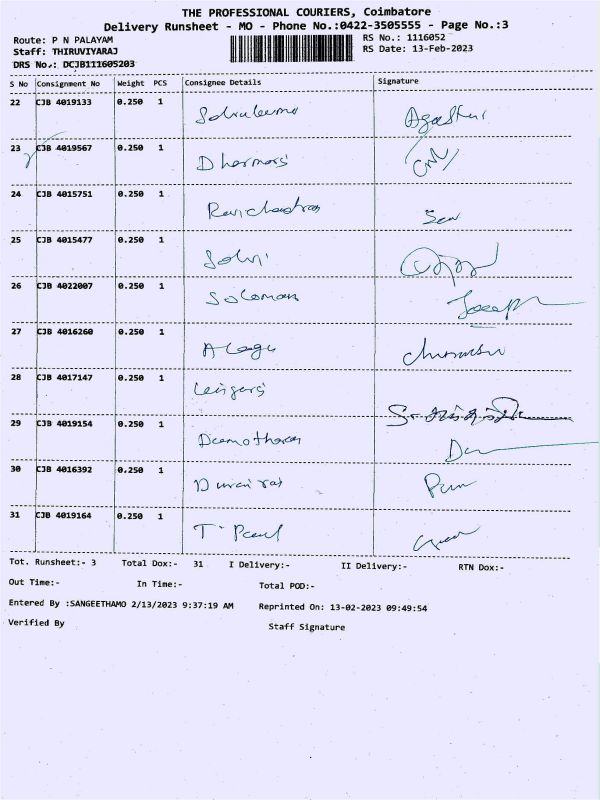 THE PROFESSIONAL COURIERS, Coimbatore
Delivery Runsheet - MO - Phone No.:0422-3505555 - Page No.:3
Route: P N PALAYAM RS No.: 1116052
Staff: THIRUVIYARAJ RS Date: 13-Feb-2023
DRS No.: DCJB111605203
S No Consignment No Weight PCS Consignee Details Signature
22 CJB 4019133 0.250 1
23 CJB 4019567 0.250 1 Dharmaraj
24 CJB 4015751 0.250 1 Ravichandran
25 CJB 4015477 0.250 1
26 CJB 4022007 0.250 1 Solomon Joseph
27 CJB 4016260 0.250 1 Alagu
28 CJB 4017147 0.250 1
29 CJB 4019154 0.250 1 Damotharan
30 CJB 4016392 0.250 1 Durairaj
31 CJB 4019164 0.250 1 T. Paul
Tot. Runsheet:- 3 Total Dox:- 31 I Delivery:- II Delivery:- RTN Dox:-
Out Time:- In Time:- Total POD:-
Entered By :SANGEETHAMO 2/13/2023 9:37:19 AM Reprinted On: 13-02-2023 09:49:54
Verified By Staff Signature